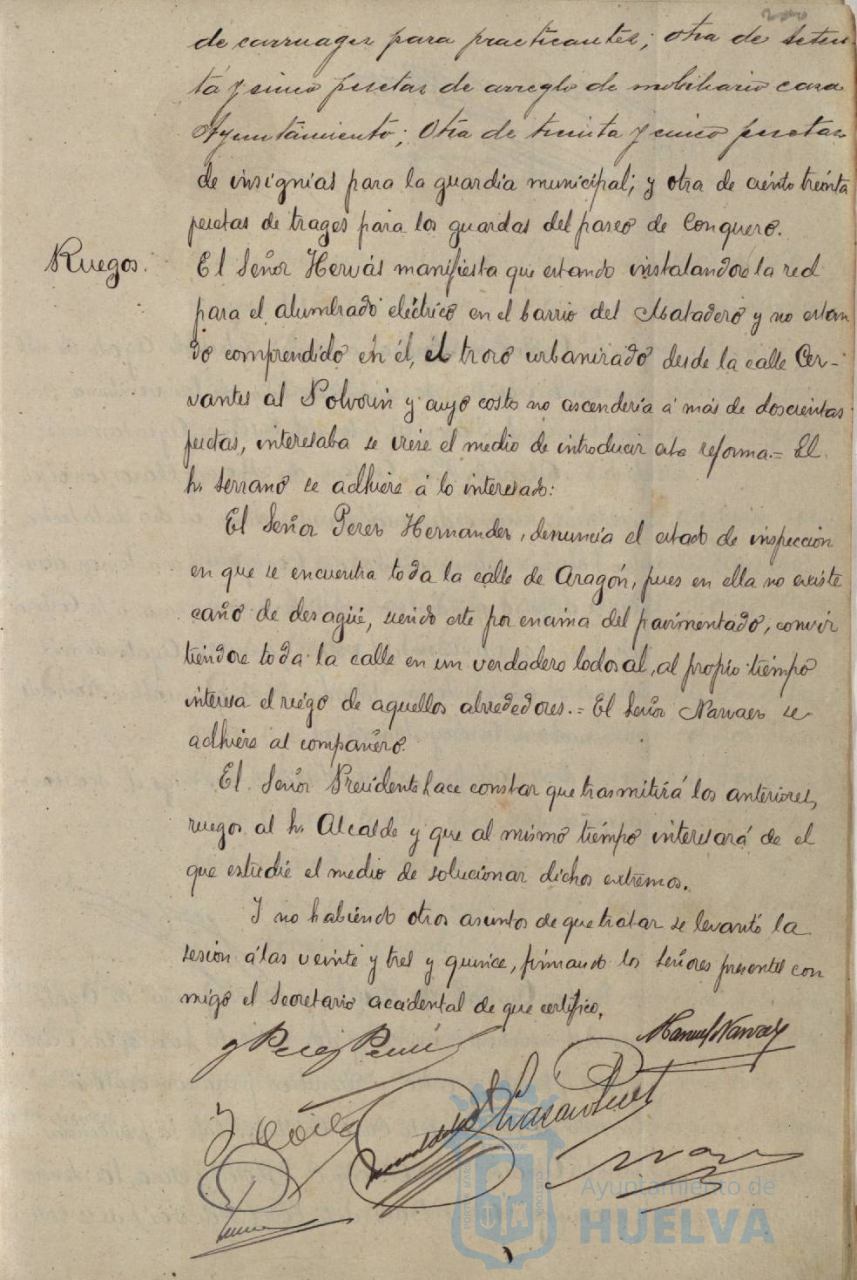 de carruages para practicantes; otra de seten
ta y cinco pesetas de arreglo de mobiliario casa
Ayuntamiento; Otra de treinta y cinco pesetas
de insignias para la guardia municipal; y otra de ciento treinta
pesetas de trages para los guardas del paseo de Conquero.
Ruegos.
El Señor Hervás manifiesta que estando instalandose la red
para el alumbrado eléctrico en el barrio del Matadero y no estan
do comprendido en él, el trozo urbanizado desde la calle Cer-
vantes al Polvorin y cuyo costo no ascendería á más de doscientas
pesetas, interesaba se viese el medio de introducir esta reforma.= El
Sr. Serrano se adhiere á lo interesado:
El Señor Perez Hernandez, denuncia el estado de inspección
en que se encuentra toda la calle de Aragón, pues en ella no existe
caño de desagüe, siendo este por encima del pavimentado, convir
tiendose toda la calle en un verdadero lodosal, al propio tiempo
interesa el riego de aquellos alrededores.= El Señor Narvaez se
adhiere al compañero.
El Señor Presidente hace constar que trasmitirá los anteriores,
ruegos al Sr. Alcalde y que al mismo tiempo interesará de el
que estudie el medio de solucionar dichos extremos.
Y no habiendo otros asuntos de que tratar se levantó la
sesión á las veinte y tres y quince, firmando los señores presentes con
migo el secretario accidental de que certifico.
Manuel Narvaez
Ayuntamiento de
HUELVA